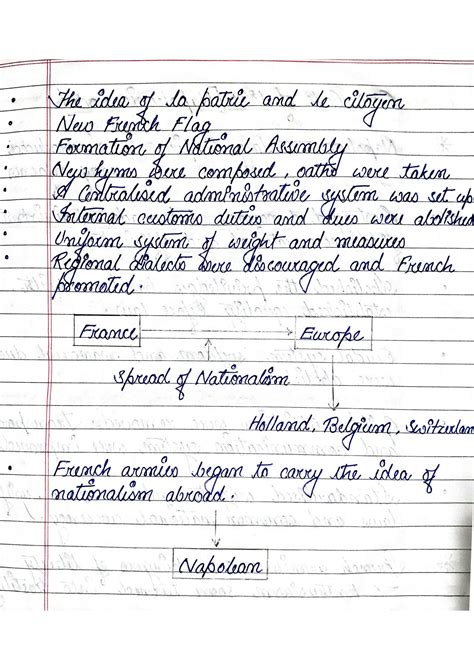 • The idea of la patrie and le citoyen
• New French Flag
• Formation of National Assembly
• New hyms were composed, oaths were taken
• A Centralised administrative system was set up
• Internal customs duties and dues were abolished
• Uniform system of weight and measures
• Regional dialects were discouraged and French
promoted.
France → Europe
Spread of Nationalism
Holland, Belgium, Switzerland
• French armies began to carry the idea of
nationalism abroad.
Napolean